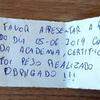 FAVOR APRESENTAR A
DO DIA 05-06-2019
DA ACADEMIA, CERTIFIC
FOI REALIZADO
OBRIGADO!!!